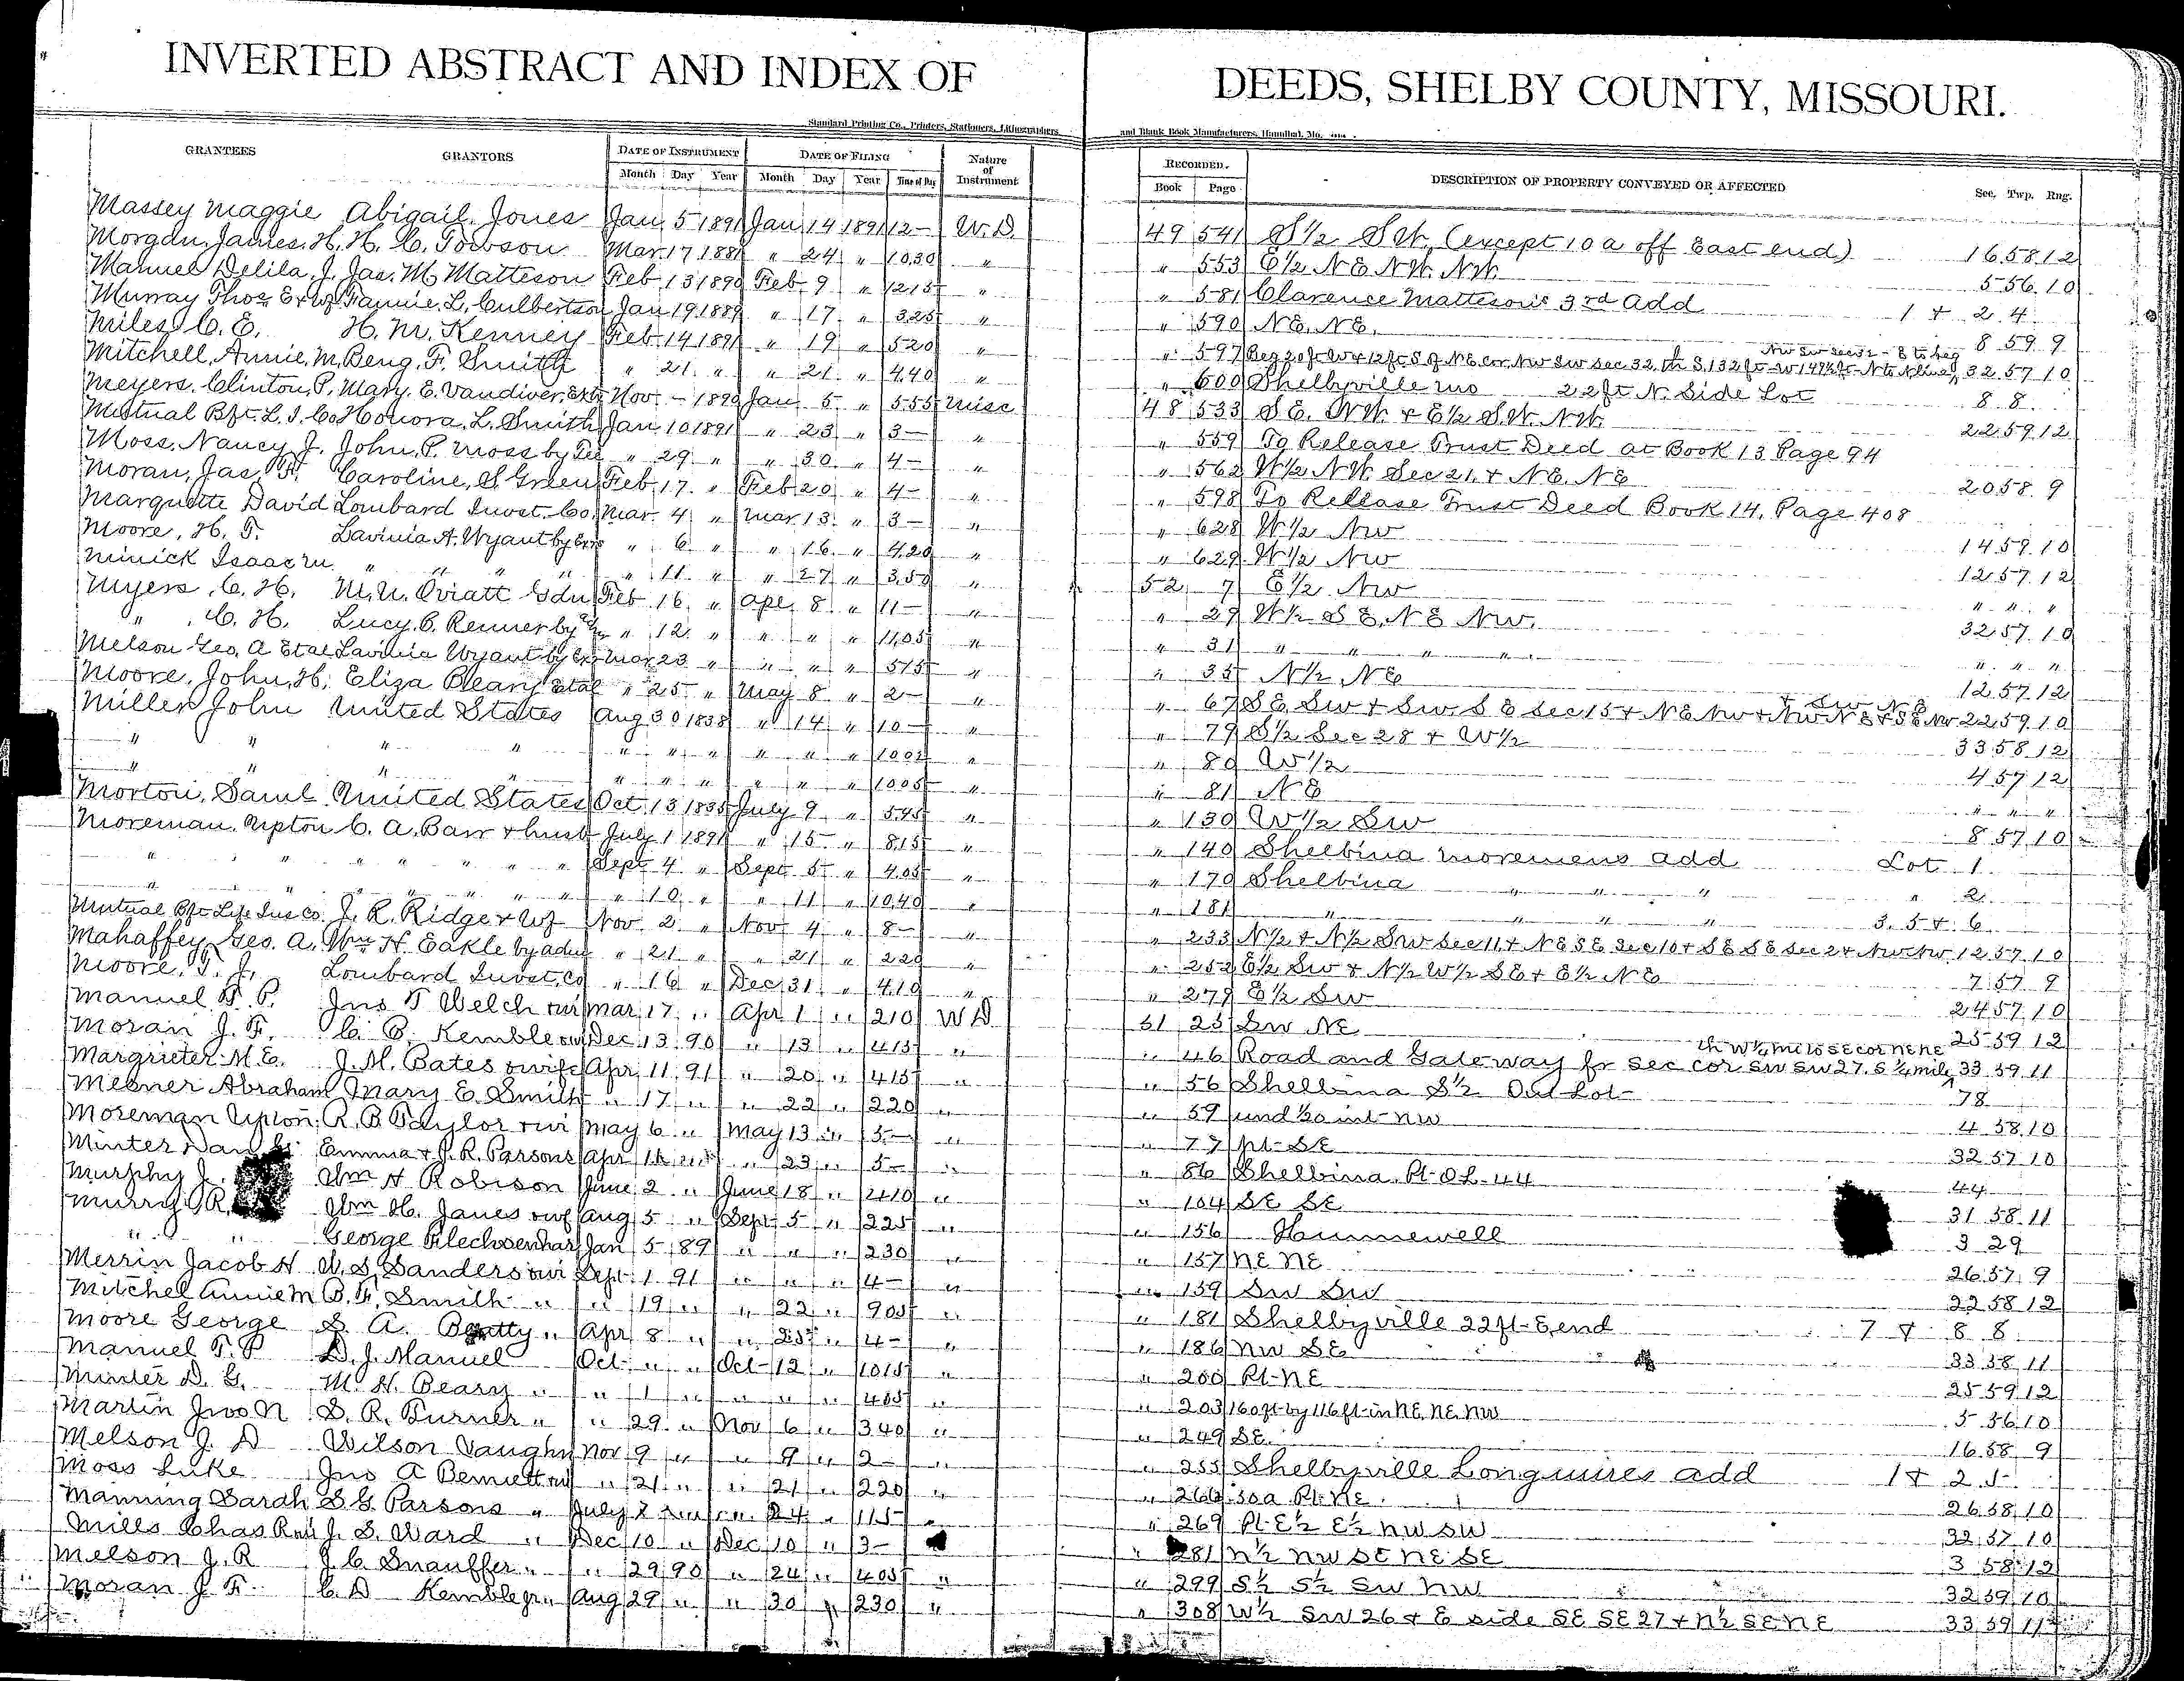 INVERTED ABSTRACT AND INDEX OF DEEDS, SHELBY COUNTY, MISSOURI.
Standard Printing Co., Printers, Stationers, Lithographers and Blank Book Manufacturers, Hannibal, Mo.
GRANTEES GRANTORS DATE OF INSTRUMENT DATE OF FILING Nature of Instrument RECORDED. DESCRIPTION OF PROPERTY CONVEYED OR AFFECTED Sec. Twp. Rng.
Month Day Year Month Day Year Time of Day Book Page
Massey Maggie Abigail Jones Jan 5 1891 Jan 14 1891 12- W.D. 49 541 S½ SW. (except 10 a off East end) 16 58 12
Morgan, James. H. H. C. Towson Mar 17 1881 " 24 " 10 30 " " 553 E½ NE NW. NW. 5 56 10
Manuel Delila. J. Jas. M. Matteson Feb 13 1890 Feb 9 " 12 15 " " 581 Clarence Matteson's 3rd add 1 + 2 4
Murray Thos E + Wf Fannie. L. Culbertson Jan 19 1889 " 17 " 3 25 " " 590 NE. NE. 8 59 9
Miles C. E. H. M. Kenney Feb 14 1891 " 19 " 5 20 " " 597 Beg 20 ft W + 12 ft S of NE cor NW SW Sec 32, th S. 132 ft - W 149½ ft - N to N line NW SW Sec 32 - E to beg 32 57 10
Mitchell, Annie. M. Benj. F. Smith " 21 " " 21 " 4 40 " " 600 Shelbyville Mo 22 ft N. Side Lot 8 8
Meyers. Clinton, P. Mary. E. Vandiver, Extx Nov - 1890 Jan 5 " 5 55 Misc 48 533 SE. NW. + E½ SW. NW. 22 59 12
Mutual Bft. L. I. Co Honora. L. Smith Jan 10 1891 " 23 " 3- " " 559 To Release Trust Deed at Book 13 Page 94
Moss. Nancy J. John. P. Moss by Tee " 29 " " 30 " 4- " " 562 W½ NW. Sec 21. + NE. NE 20 58 9
Moran, Jas. F. Caroline, S Green Feb 17 " Feb 20 " 4- " " 598 To Release Trust Deed Book 14, Page 408
Marquette David Lombard Invst. Co. Mar 4 " Mar 13 " 3- " " 628 W½ NW 14 59 10
Moore, H. T. Lavinia A. Wyant by Exrs " 6 " " 16 " 4 20 " " 629 W½ NW 12 57 12
Minick Isaac M. " " " " 11 " " 27 " 3 50 " 52 7 E½ NW " " "
Myers, C. H. M. U. Oviatt Gdn Feb 16 " Apl 8 " 11- " " 29 W½ SE, NE NW. 32 57 10
" C. H. Lucy. C. Renner by " 12 " " " " 11 05 " " 31 " " " " " " "
Melson Geo. A Etal Lavinia Wyant by Exr Mar 23 " " " " 5 15 " " 35 N½ NE 12 57 12
Moore, John. H. Eliza Beary Etal " 25 " May 8 " 2- " " 67 SE SW + SW. SE Sec 15 + NE NW + NW NE + SE NW + SW NE 22 59 10
Miller John United States Aug 30 1838 " 14 " 10- " " 79 S½ Sec 28 + W½ 33 58 12
" " " " " " " " " " 10 02 " " 80 W½ 4 57 12
" " " " " " " " " " 10 05 " " 81 NE " " "
Morton, Saml. United States Oct 13 1835 July 9 " 5 45 " " 130 W½ SW 8 57 10
Moreman. Upton C. A. Barr + husb July 1 1891 " 15 " 8 15 " " 140 Shelbina Moremens add Lot 1
" " " " " " Sept 4 " Sept 5 " 4 05 " " 170 Shelbina " " " " 2
" " " " " " " 10 " " 11 " 10 40 " " 181 " " " " 3. 5 + 6
Mutual Bft Life Ins Co. J. R. Ridge + Wf Nov 2 " Nov 4 " 8- " " 233 N½ + N½ SW Sec 11 + NE SE Sec 10 + SE SE Sec 2 + NW NW 12 57 10
Mahaffey Geo. A. Wm H. Eakle by adm " 21 " " 21 " 2 20 " " 252 E½ SW + N½ W½ SE + E½ NE 7 57 9
Moore, T. J. Lombard Invst. Co " 16 " Dec 31 " 4 10 " " 279 E½ SW 24 57 10
Manuel T. P. Jno T Welch + wi Mar 17 " Apr 1 " 2 10 W D 51 23 SW NE 25 59 12
Moran J. F. C. D. Kemble + wi Dec 13 90 " 13 " 4 15 " " 46 Road and Gateway fr Sec cor SW SW 27. S ¼ mile th W ¼ mi to SE cor NE NE 33 59 11
Margrieter M. E. J. M. Bates + wife Apr 11 91 " 20 " 4 15 " " 56 Shelbina S½ Out Lot 78
Mesner Abraham Mary E. Smith " 17 " " 22 " 2 20 " " 59 und ½0 int NW 4 58 10
Moreman Upton. R. B Taylor + wi May 6 " May 13 " 5- " " 77 pt SE 32 57 10
Minter Emma + J. R. Parsons Apr " " 23 " 5- " " 86 Shelbina Pt O.L. 44 44
Murphy J. Wm H Robison June 2 " June 18 " 2 10 " " 104 SE SE 31 58 11
Murry R. Wm H. Janes + wf Aug 5 " Sept 5 " 2 25 " " 156 Hunnewell 3 29
" " George Flechsenhar Jan 5 89 " " " 2 30 " " 157 NE NE 26 57 9
Merrin Jacob H W. S. Sanders + wi Sept 1 91 " " " 4- " " 159 SW SW 22 58 12
Mitchel Annie M B. F. Smith " " 19 " " 22 " 9 05 " " 181 Shelbyville 22 ft E end 7 + 8 8
Moore George S. A. Beatty " Apr 8 " " 25 " 4- " " 186 NW SE 33 58 11
Manuel T. P D. J. Manuel Oct " " Oct 12 " 10 15 " " 200 Pt NE 25 59 12
Minter D. G. M. H. Beary " " 1 " " " " 4 05 " " 203 160 ft by 116 ft in NE, NE, NW 5 56 10
Martin Jno N S. R. Turner " " 29 " Nov 6 " 3 40 " " 249 SE 16 58 9
Melson J. D Wilson Vaughn Nov 9 " " 9 " 2- " " 255 Shelbyville Longmires add 1 + 2 5
Moss Luke Jno A Bennett + wi " 21 " " 21 " 2 20 " " 266 30 a Pt NE 26 58 10
Manning Sarah S. G. Parsons " July 24 " 1 15 " " 269 Pt E½ E½ NW SW 32 57 10
Mills Chas R J. S. Ward " Dec 10 " Dec 10 " 3- " 281 N½ NW SE NE SE 3 58 12
Melson J. R J. C. Snauffer " " 29 90 " 24 " 4 05 " " 299 S½ S½ SW NW 32 59 10
Moran J. F. C. D Kemble jr " Aug 29 " " 30 " 2 30 " " 308 W½ SW 26 + E side SE SE 27 + N½ SE NE 33 59 11